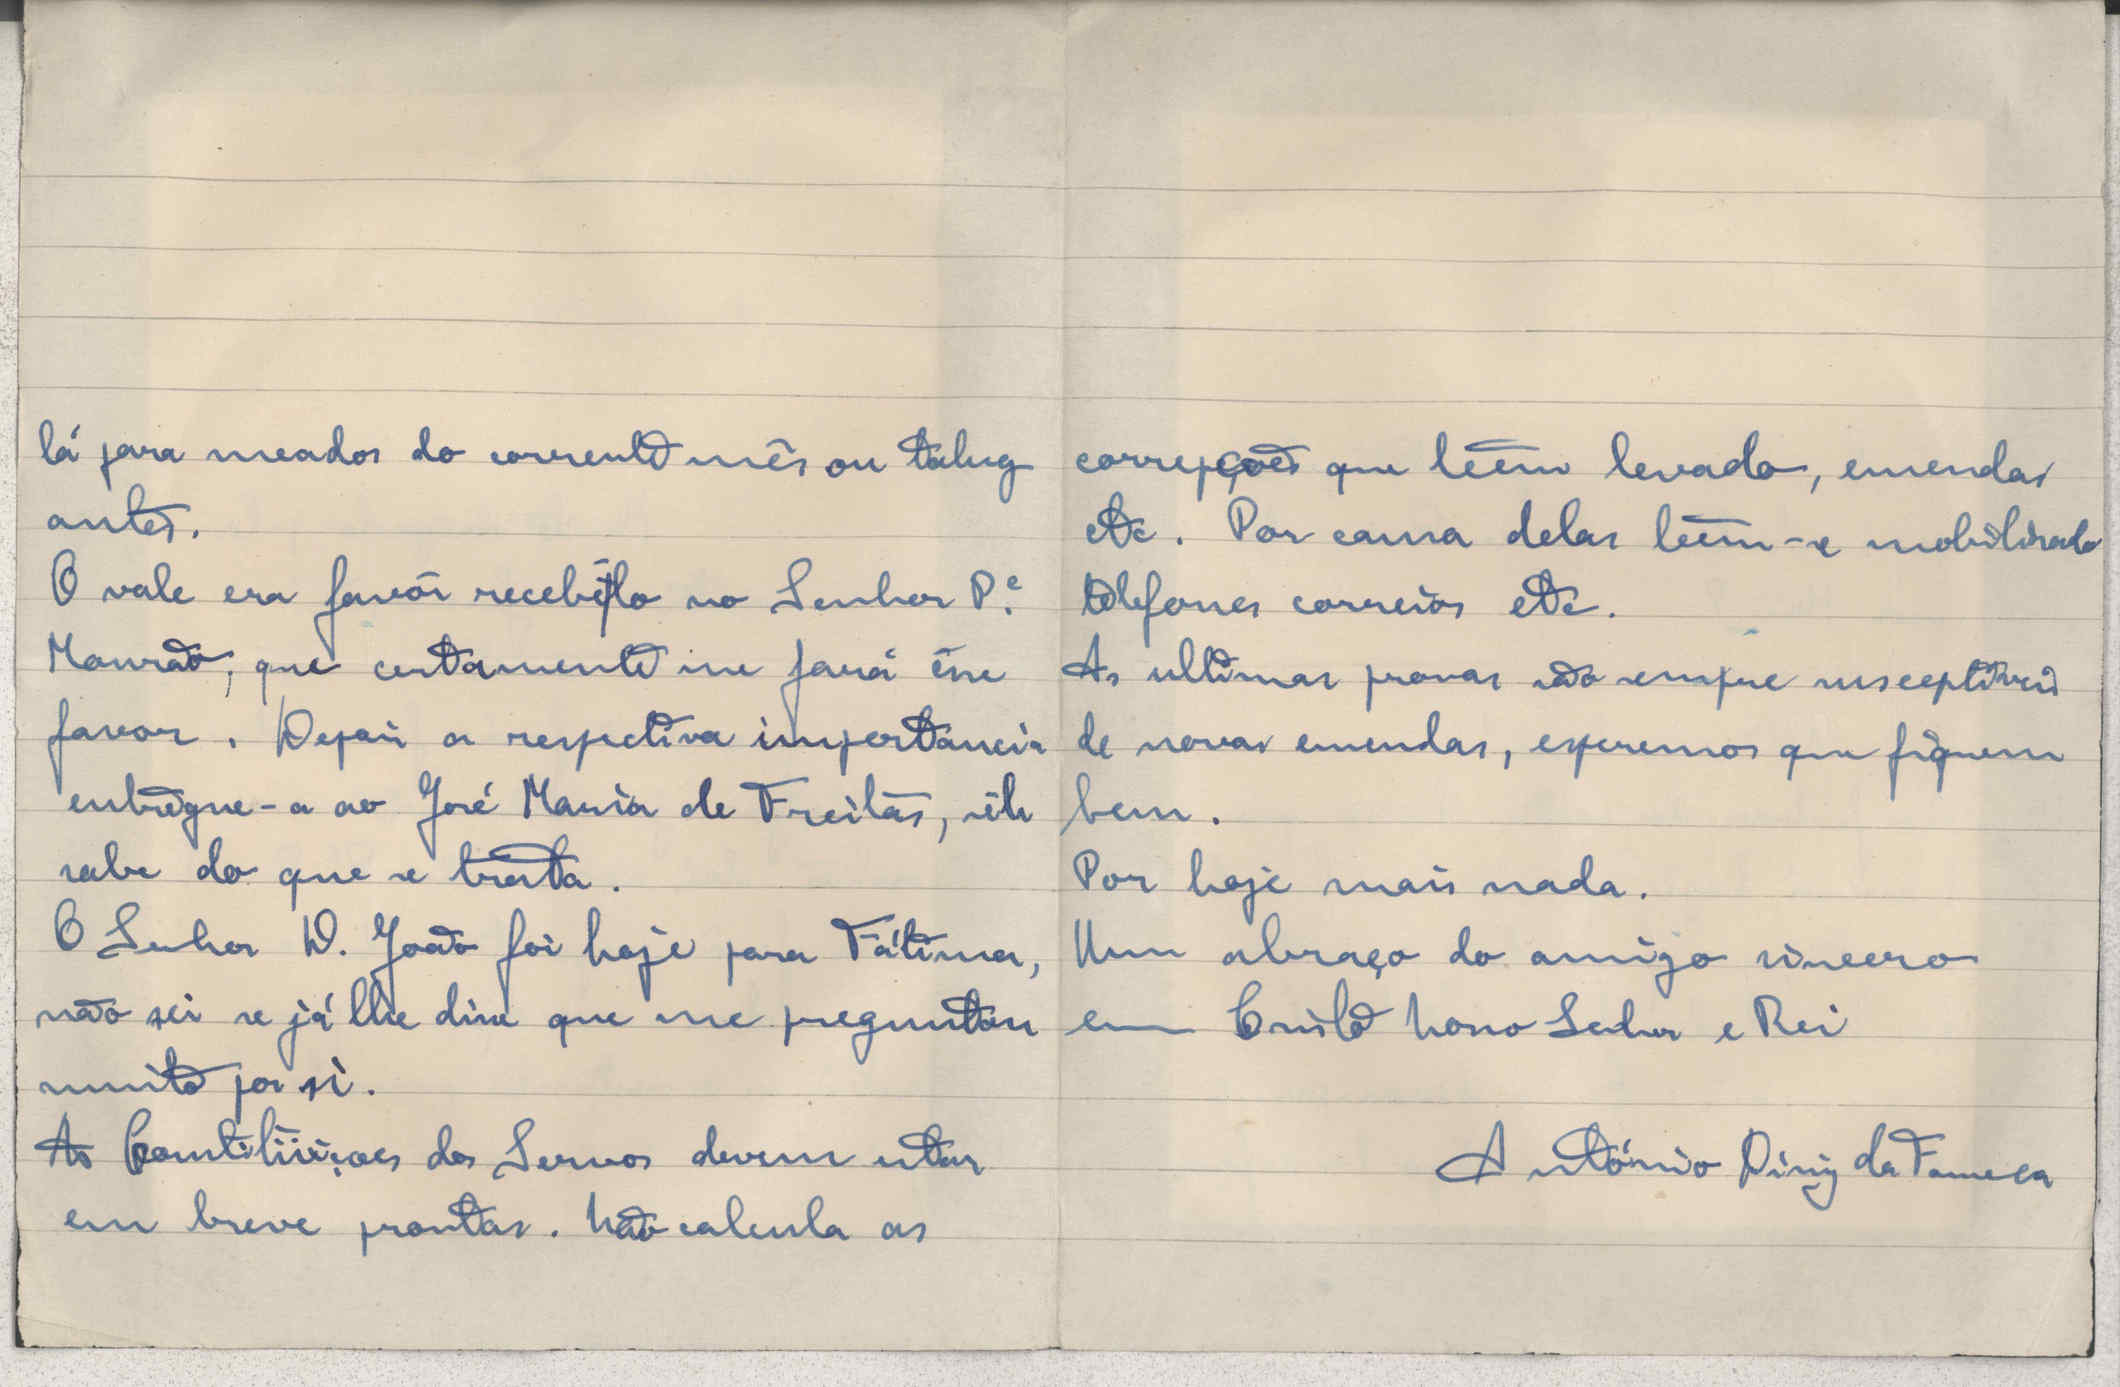 lá para meados do corrente mês ou talvez
antes.
O vale era favôr recebê-lo no Senhor P.e
Mourão, que certamente me fará êsse
favor. Depois a respectiva importancia
entregue-a ao José Maria de Freitas, êle
sabe do que se trata.
O Senhor D. João foi hoje para Fátima,
não sei se já lhe disse que me preguntou
muito por si.
As Constituiçoes dos Servos devem estar
em breve prontas. Não calcula as
correpções que teem levado, emendas
etc. Por causa delas teem-se mobilizado
telefones correios etc.
As ultimas provas são sempre susceptiveis
de novas emendas, esperemos que fiquem
bem.
Por hoje mais nada.
Um abraço do amigo sincero
em Cristo Nosso Senhor e Rei
António Diniz da Fonseca